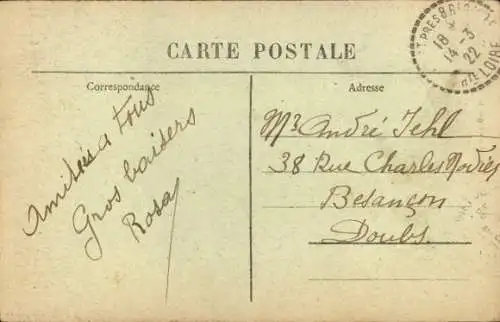 CARTE POSTALE
Correspondance
Amitiés à Tous
Gros baisers
Rosa
Adresse
Mr André Jehl
38 Rue Charles Nodier
Besançon
Doubs.
18 *
14-3
22
Hte LOIRE